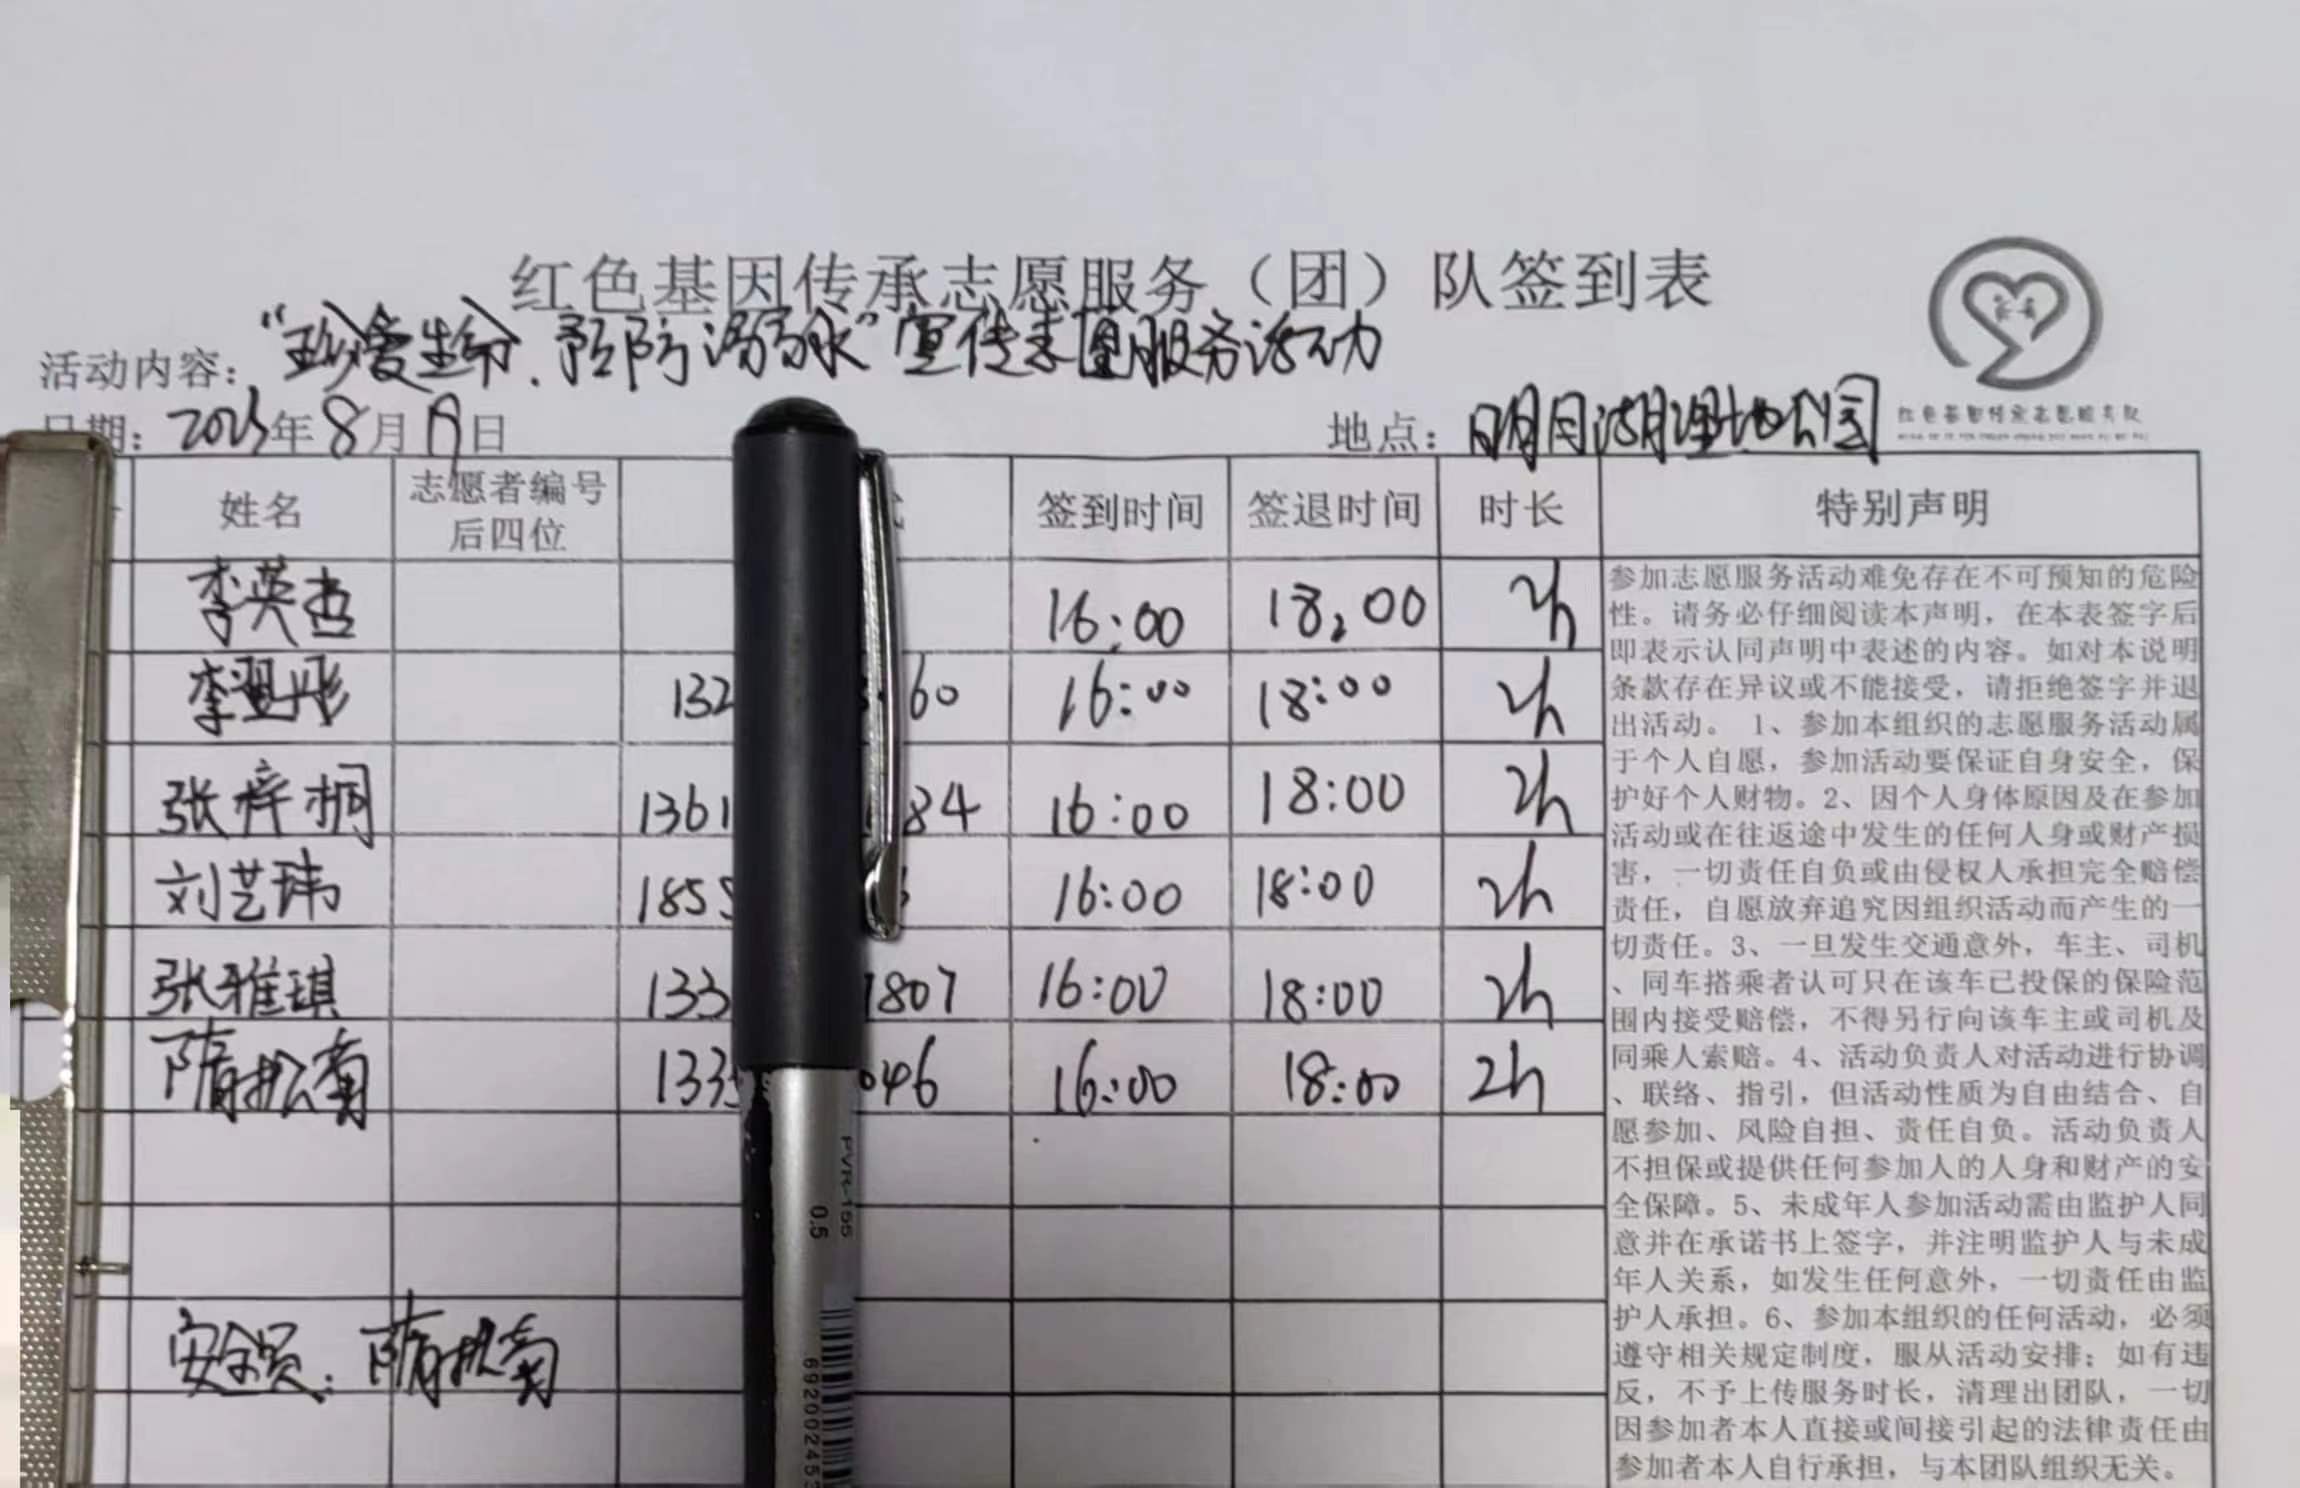 红色基因传承志愿服务（团）队签到表
活动内容：“珍爱生命、预防溺水”宣传志愿服务活动
日期：2023年8月19日 地点：明月湖湿地公园
姓名 志愿者编号后四位 签到时间 签退时间 时长 特别声明
李英杰 16:00 18:00 2h
李翌彤 132 60 16:00 18:00 2h
张梓桐 1361 84 16:00 18:00 2h
刘艺玮 185 16:00 18:00 2h
张雅琪 133 1807 16:00 18:00 2h
隋 菊 133 046 16:00 18:00 2h
安全员：隋 菊
参加志愿服务活动难免存在不可预知的危险
性。请务必仔细阅读本声明，在本表签字后
即表示认同声明中表述的内容。如对本说明
条款存在异议或不能接受，请拒绝签字并退
出活动。 1、参加本组织的志愿服务活动属
于个人自愿，参加活动要保证自身安全，保
护好个人财物。2、因个人身体原因及在参加
活动或在往返途中发生的任何人身或财产损
害，一切责任自负或由侵权人承担完全赔偿
责任，自愿放弃追究因组织活动而产生的一
切责任。3、一旦发生交通意外，车主、司机
、同车搭乘者认可只在该车已投保的保险范
围内接受赔偿，不得另行向该车主或司机及
同乘人索赔。4、活动负责人对活动进行协调
、联络、指引，但活动性质为自由结合、自
愿参加、风险自担、责任自负。活动负责人
不担保或提供任何参加人的人身和财产的安
全保障。5、未成年人参加活动需由监护人同
意并在承诺书上签字，并注明监护人与未成
年人关系，如发生任何意外，一切责任由监
护人承担。6、参加本组织的任何活动，必须
遵守相关规定制度，服从活动安排；如有违
反，不予上传服务时长，清理出团队，一切
因参加者本人直接或间接引起的法律责任由
参加者本人自行承担，与本团队组织无关。
红色基因传承志愿服务队
PVR-155
0.5
692002453